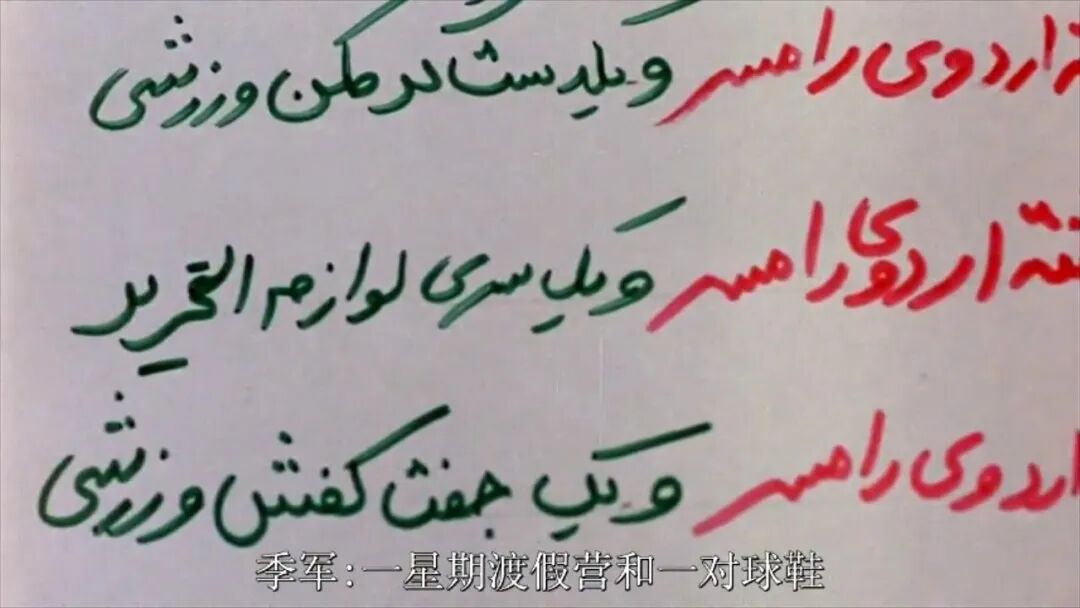 اردوی رامسر و یکدست گرمکن ورزشی
اردوی رامسر و یک سری لوازم التحریر
اردوی رامسر و یک جفت کفش ورزشی
季军:一星期渡假营和一对球鞋